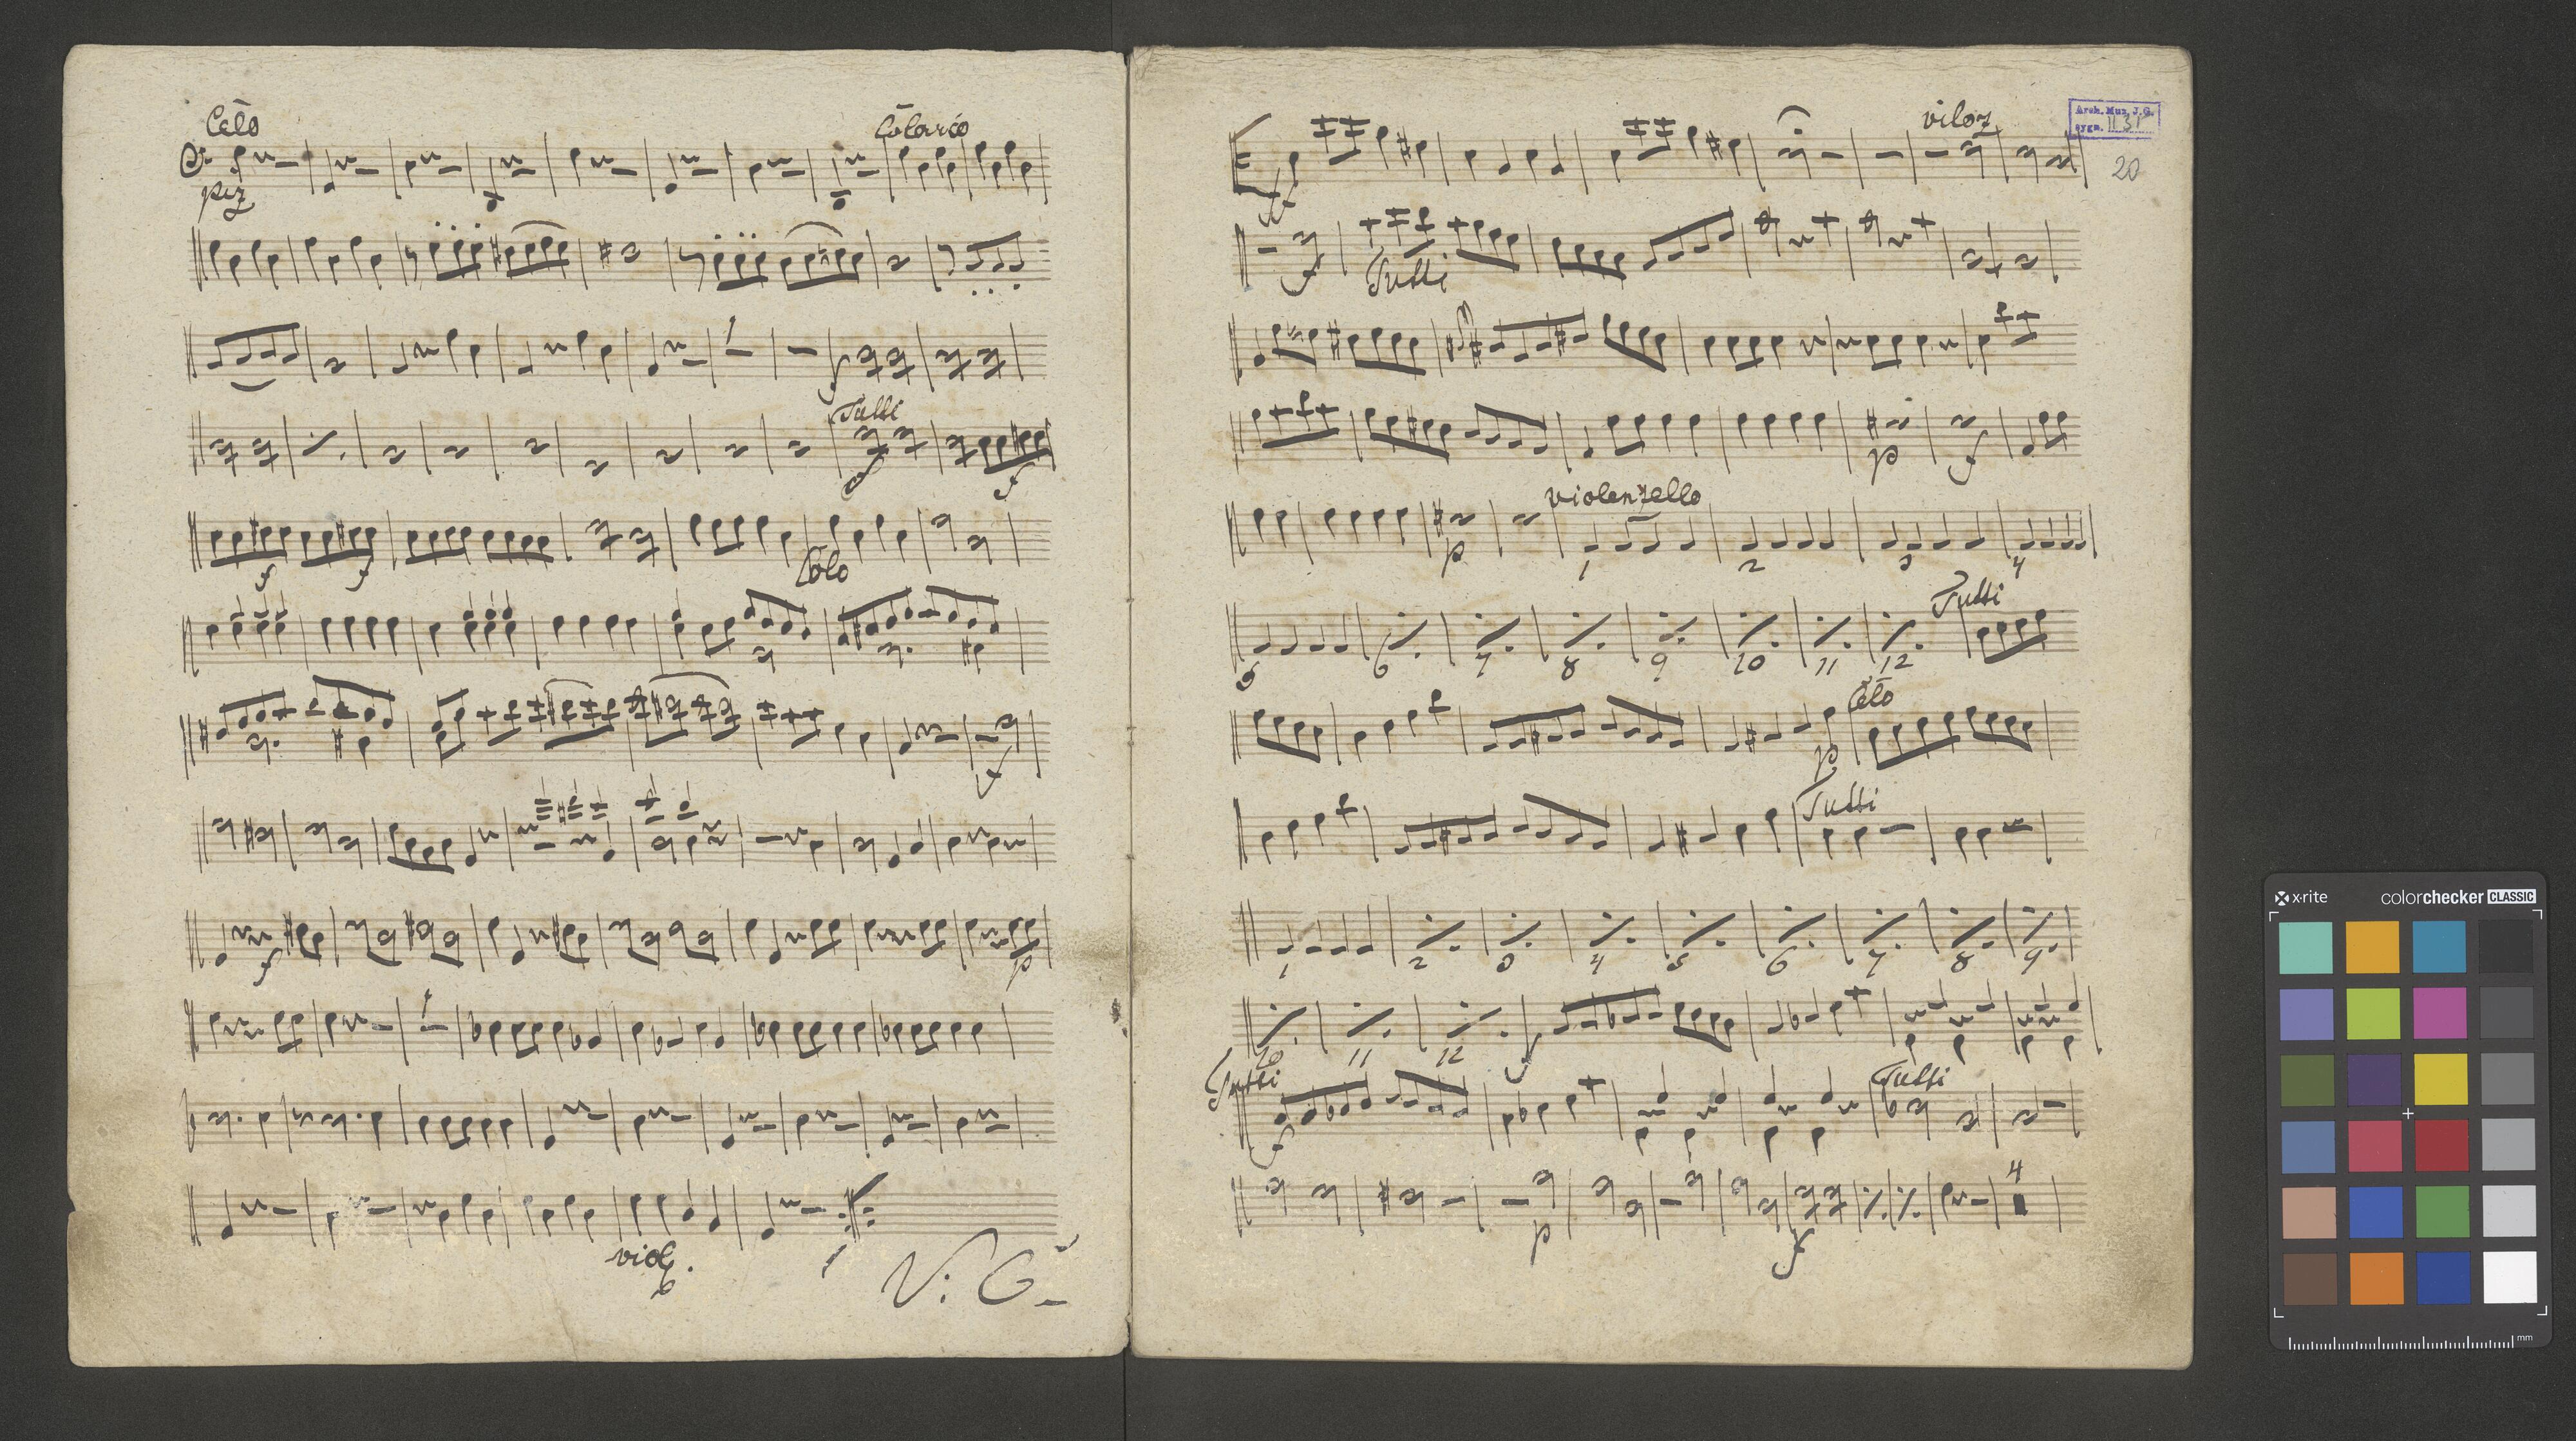 Celo
Colarco
piz
f
Tutti
f
f
f
f
Colo
f
f
p
viol.
V: C.
viloz
Arch. Mun. J.G.
sygn. II 31
20
ff
f
Tutti
p
f
violenzello
p
1 2 3 4
Tutti
5 6 7 8 9 10 11 12
Celo
p
Tutti
1 2 3 4 5 6 7 8 9
10 11 12
f
Tutti
Tutti
f
4
p
f
x-rite
colorchecker CLASSIC
mm